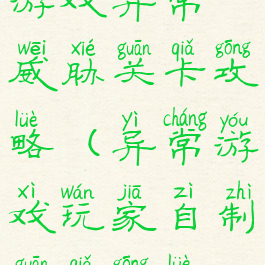 游戏异常
wēi xié guān qiǎ gōng
威胁关卡攻
lüè yì cháng yóu
略（异常游
xì wán jiā zì zhì
戏玩家自制
guān qiǎ gōng lüè